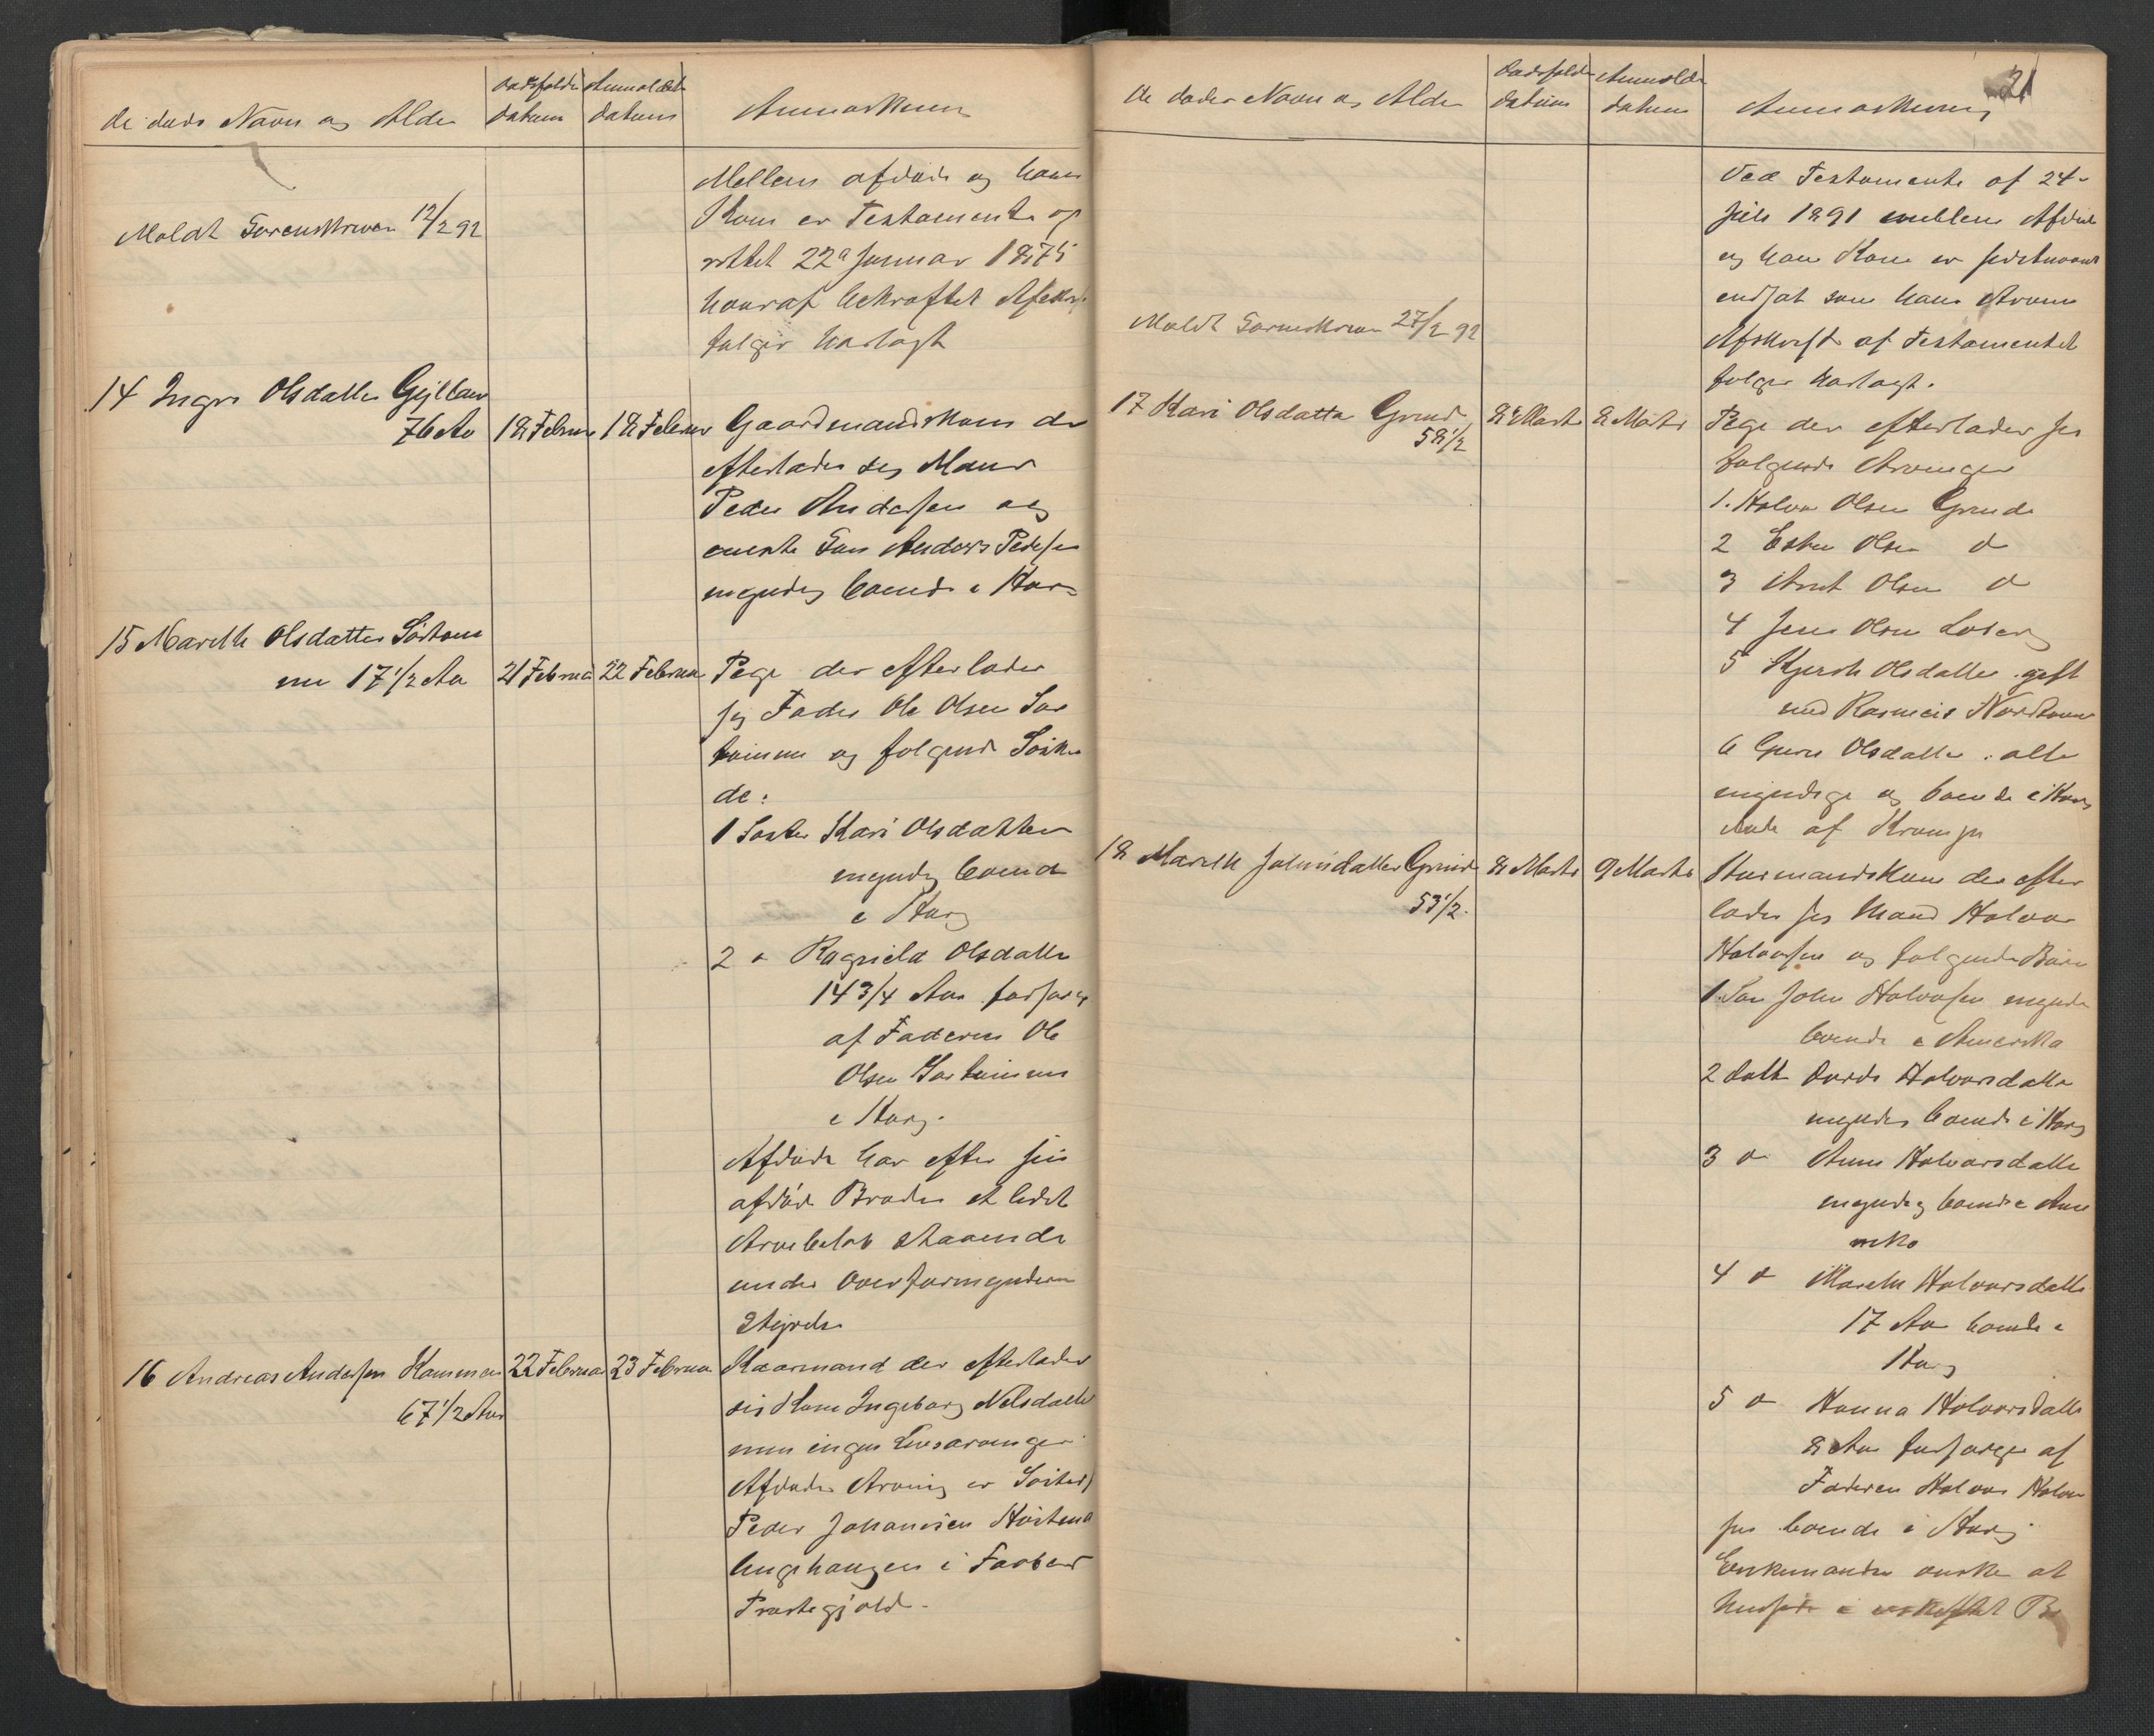 de døde Navn og Alder
Dødsfalds datum
Anmeldelse datum
Anmærkning
Mellem afdøde og hans
Kone er Testamente op
rettet 22de Januar 1875
hvoraf bekræftet Afskrift
følger vedlagt
Meldt Sorenskriveren 12/2 92
14 Ingri Olsdatter Gylland
76 Aar 18 Februar 18 Februar Gaardmandskone der
efterlader sig Mand
Peder Andersen og
eneste Søn Anders Pedersen
myndig boende i Horg
15 Marith Olsdatter Sørtøm
me 17 1/2 Aar 21 Februar 22 Februar Pige der efterlader
sig Fader Ole Olsen Sør
tømme og følgende Søsken
de:
1 Søster Kari Olsdatter
myndig boende
i Horg
2 do Ragnild Olsdatter
14 3/4 Aar forsørges
af Faderen Ole
Olsen Sørtømme
i Horg.
Afdøde har efter sin
afdøde Broder et lidet
Arvebeløb staaende
under Overformynderiets
Styrelse
16 Andreas Andersen Kammen 22 Februar 23 Februar Kaarmand der efterlader
67 1/2 Aar
sig Kone Ingeborg Nilsdatter
men ingen Livsarvinger
Afdødes Arving er Søsters
Peder Johansen
i
Præstegjæld.
21
de døde Navn og Alder
Dødsfalds datum
Anmeldelse datum
Anmærkning
Ved Testamente af 24de
Juli 1891 mellem Afdøde
og hans Kone er sidstnævnte
indsat som hans Arving
Afskrift af Testamentet
følger vedlagt.
Meldt Sorenskriveren 27/2 92
17 Kari Olsdatter Grinde 8 Marts 8 Marts Pige der efterlader sig
58 1/2
følgende Arvinger
1. Halvor Olsen Grinde
2 Esten Olsen do
3 Arnt Olsen do
4 Jens Olsen Loberg
5 Kjersti Olsdatter gift
med Rasmus
6 Guru Olsdatter. alle
myndige og boende i Horg
18 Marith Johnsdatter Grinde 8 Marts 9 Marts Husmandskone der efter
53 1/2.
lader sig Mand Halvor
Halvorsen og følgende Børn
1. Søn John Halvorsen myndig
boende i Amerika
2 Datt Halvorsdatter
myndig boende i Horg
3 do Anne Halvorsdatter
myndig boende i Ame
rika
4 do Marith Halvorsdatter
17 Aar boende i
Horg
5 do Hanna Halvorsdatter
8 Aar forsørges af
Faderen Halvor Halvor
sen boende i Horg.
Enkemanden ønsker at
hensidde i uskiftet Bo